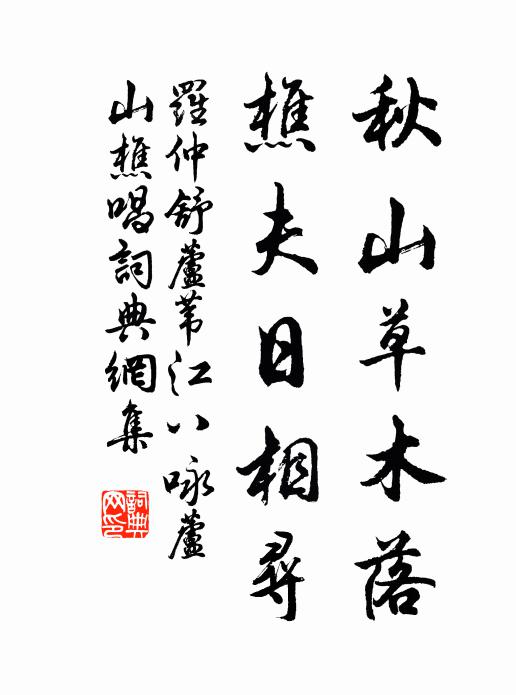 秋山草木落
樵夫日相尋
羅仲舒蘆葦江八咏蘆
山樵唱詞典網集
詞典网印